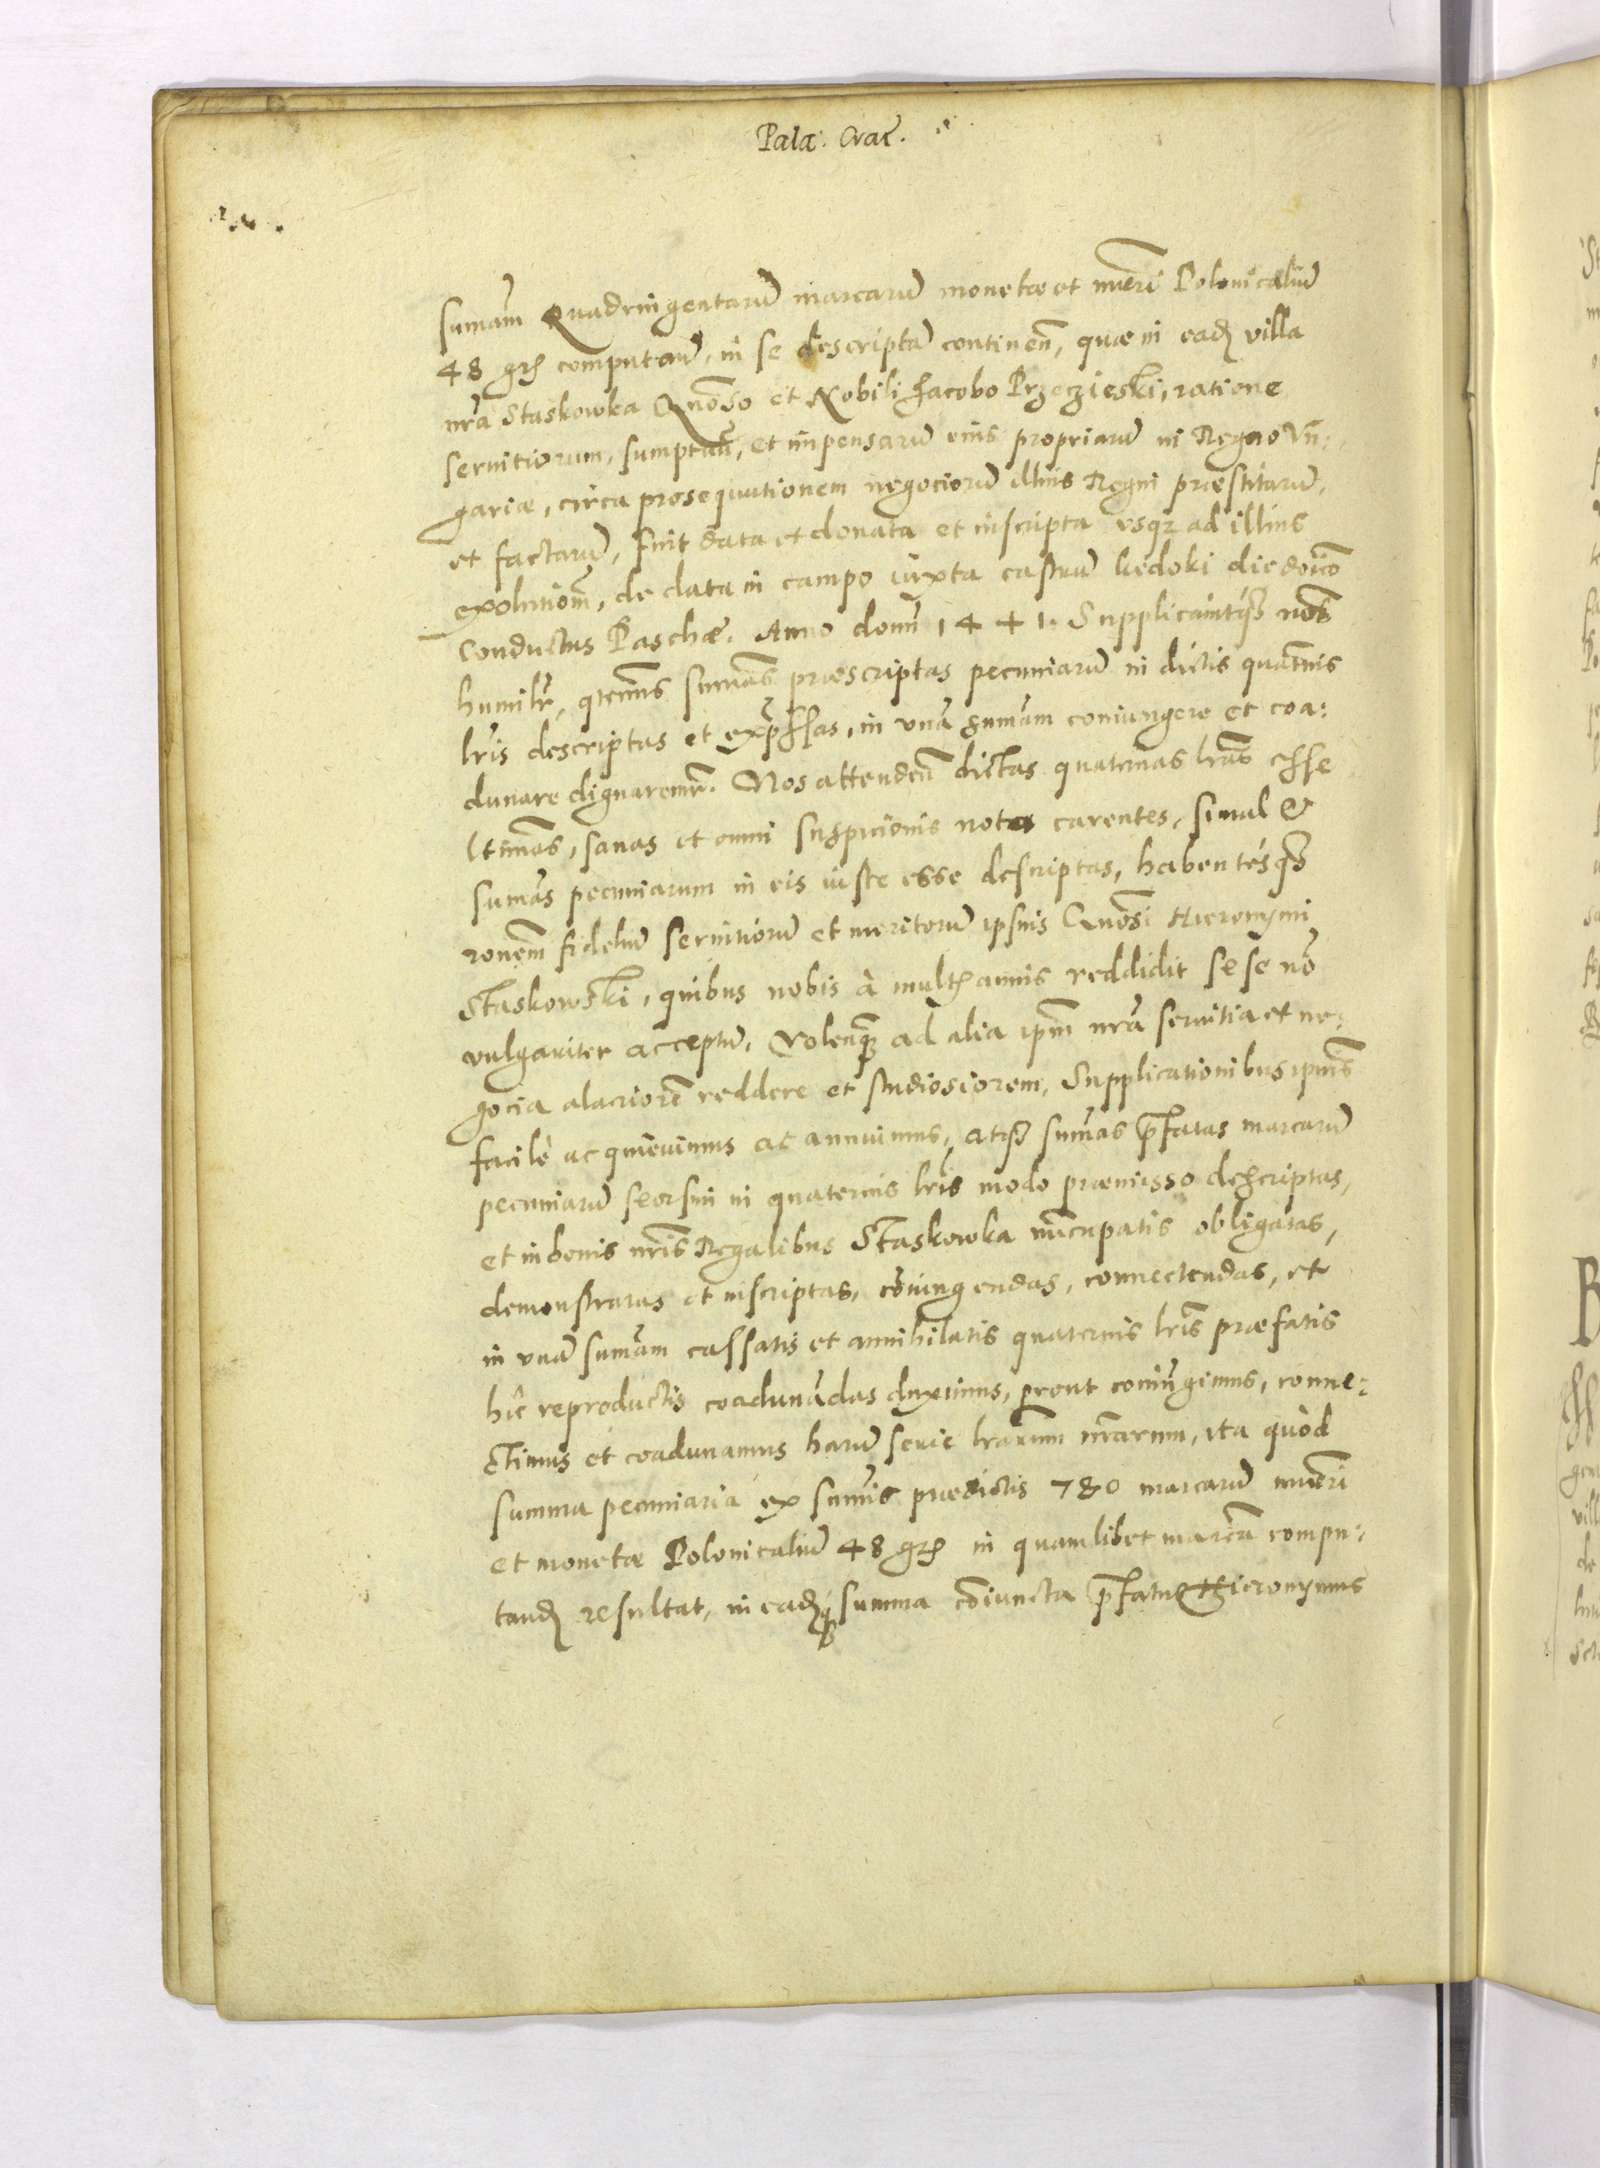 Pala: Crac̄.
sum̄am Quadringentarū marcarū monetæ et nūeri Polonicaliū
48 grͦ computanđ, in se descriptā continen̄, quæ in eadꝫ villa
nr̄a Staskowka Gn̄oso et Nobili Jacobo Przeczieski, ratione
seruitiorum, sumptuū, et impensarū eius propriarū in Regno Vn:
gariæ, circa prosequutionem negociorū illius Regni præstitarū,
et factarū, fuit data et donata et inscripta usqꝫ ad illius
exolutiōm, de data in campo iuxta castrum kedoki die do͞ico
Conductus Paschæ. Anno domī 1441. Supplicauitqꝫ nob̄
humilr̄, q̄tenus sum̄as præscriptas pecuniarū in dictis quaternis
lr̄is descriptas et exp̄ssas, in unā sum̄am coniungere et coa:
dunare dignaremr̄. Nos attendeñ dictas quaternas lr̄as esse
ltimas, sanas et omni suspicionis nota carentes, simul &
sumās pecuniarum in eis iuste esse descriptas, habentésqꝫ
ronēm fidelium seruitiorū et meritorū ipsius Gn̄osi Hieronymi
Staskowski, quibus nobis à multꝭ annis reddidit sese nō
vulgariter acceptū, Volentesqꝫ ad alia ipm̄ nr̄a seruitia et ne:
gocia alacriorē reddere et studiosiorem, Supplicationibus ipius
facilè acquieuimus ac annuimus, atqꝫ sum̄as p̄fatas marcarū
pecuniarū seorsim in quaternis lr̄is modo præmisso descriptas,
et in bonis nr̄is Regalibus Staskowka nūcupatis obligatas,
demonstratas et inscriptas, cōiungendas, connectendas, et
in unā sum̄am cassatis et annihilatis quaternis lr̄is præfatis
hîc reproductis coadunādas duximus, prout coniūgimus, conne:
ctimus et coadunamus harū serie lr̄arum nr̄arum, ita quòd
summa pecuniaria ex sum̄is prædictis 780 marcarū nūeri
et monetæ Polonicaliū 48 grͦ in quamlibet marcā compu:
tandꝫ resultat, in eadꝫqꝫ summa cōiuncta p̄fatus Hieronymus